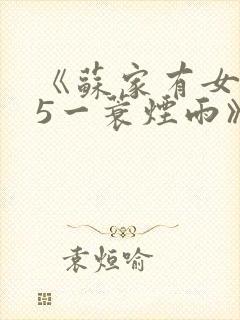 《蘇家有女
5一蓑煙雨》
袁烜喻